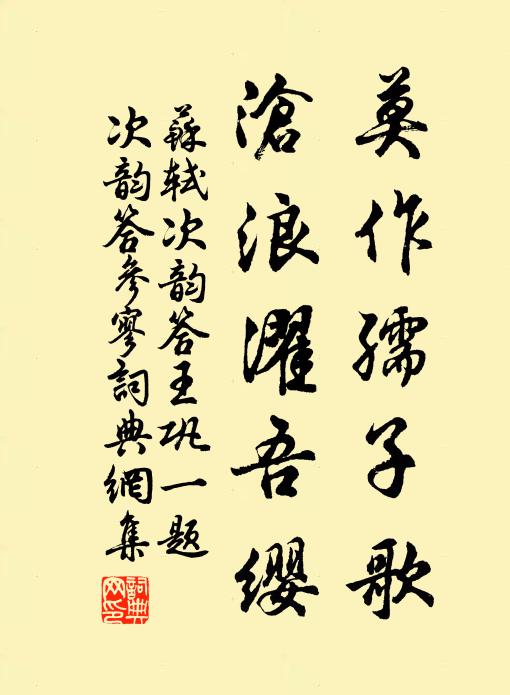 莫作孺子歌
滄浪濯吾纓
蘇轼次韵答王巩一题
次韵答參寥詞典網集